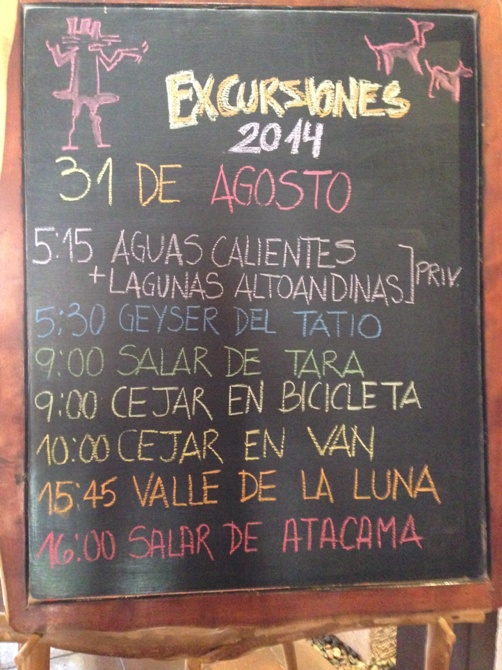 EXCURSIONES
2014
31 DE AGOSTO
5:15 AGUAS CALIENTES
+LAGUNAS ALTOANDINAS] PRIV.
5:30 GEYSER DEL TATIO
9:00 SALAR DE TARA
9:00 CEJAR EN BICICLETA
10:00 CEJAR EN VAN
15:45 VALLE DE LA LUNA
16:00 SALAR DE ATACAMA